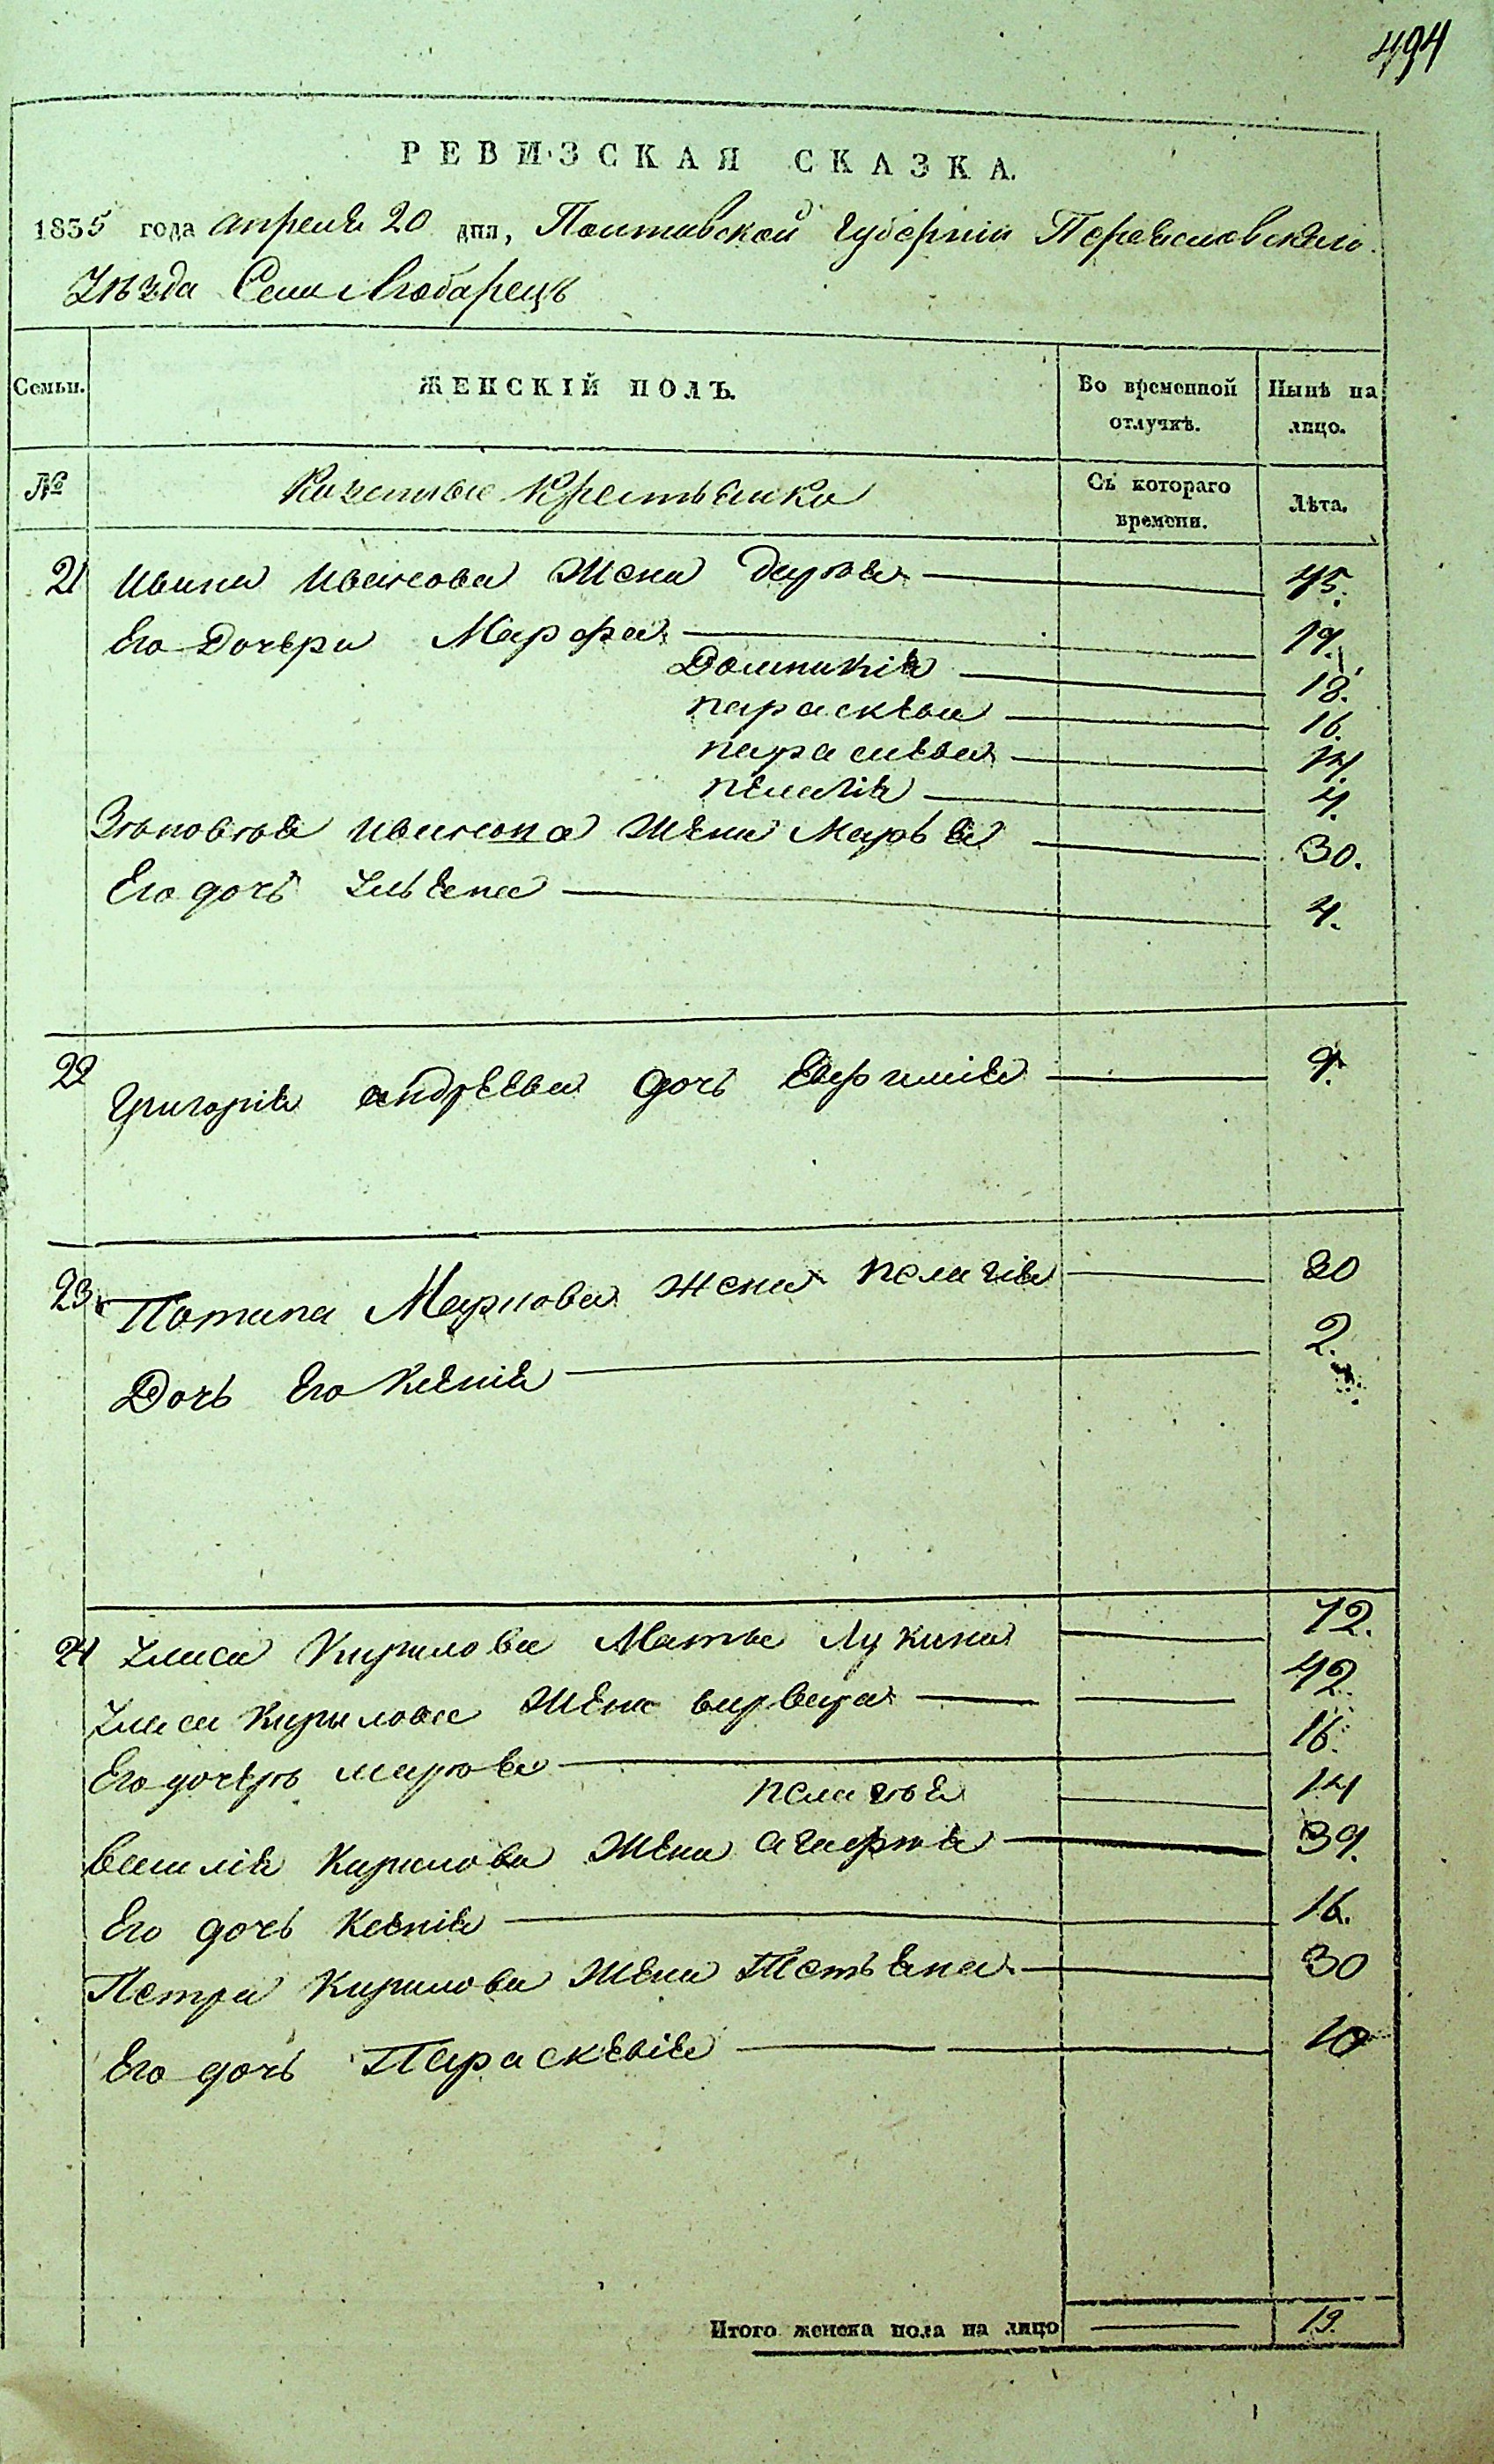 494
РЕВИЗСКАЯ СКАЗКА.
1835 года апреля 20 дня, Полтавской Губернiи Переясловскаго
Уѣзда Села Любарець
Семьи. ЖЕНСКIЙ ПОЛЪ. Во временной отлучкѣ. Нынѣ на лицо.
№ Казенные Крестьянки Съ котораго времени. Лѣта.
21 Ивана Иванова Жена Дарья 45.
Его Дочери Марфа 19.
Домникiя 18.
параскева 16.
параскева 14.
пелагiя 4.
Зѣновѣя Иванова Жена Марья 30.
Его дочь Ульяна 4.
22 Григорiя андреева дочь Евфимiя 9.
23 Потапа Маркова жена пелагiя 30
Дочь Его Ксенiя 2.
24 Кирилова Мать Лукина 72.
Кирилова Жена варвара 42.
Его дочерь марья 16.
пелагья 14
василiя Кирилова Жена агафья 39.
Его дочь Ксенiя 16.
Петра Кирилова Жена Тетьяна 30
Его дочь Параскевiя 10
Итого женска пола на лицо 19.